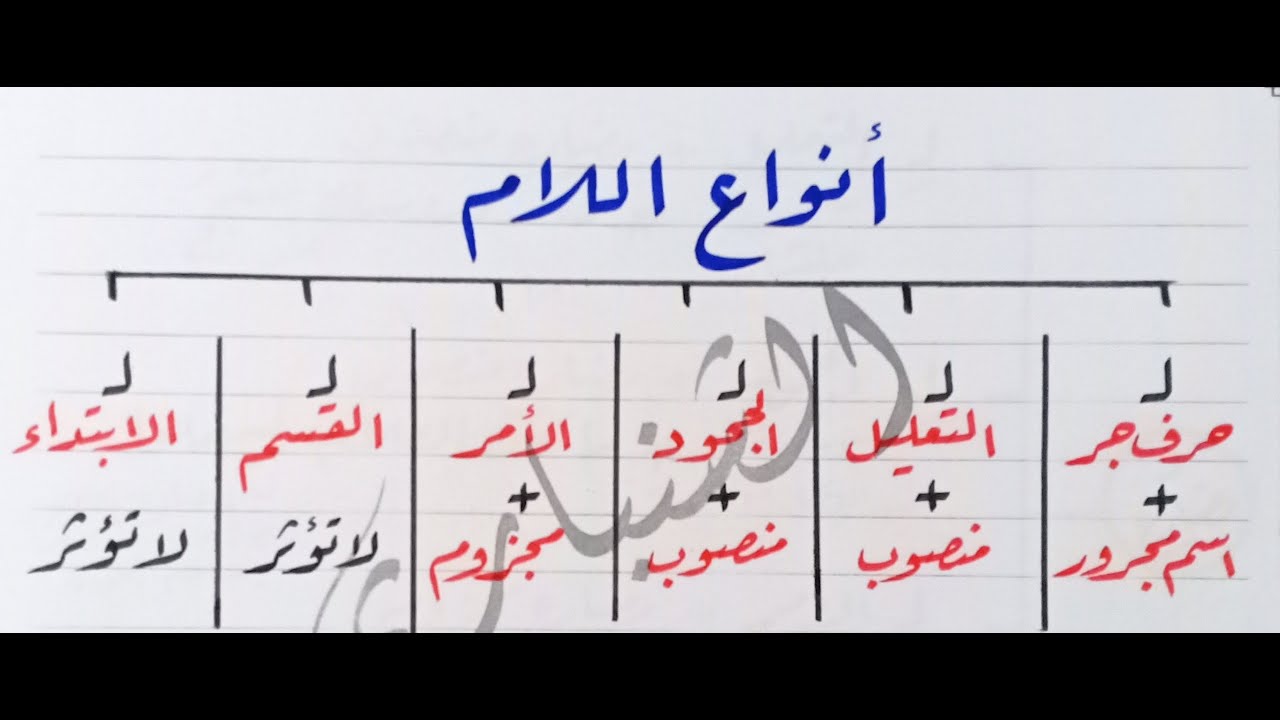 أنواع اللام
لـ لـ لـ لـ لـ لـ
حرف جر التعليل الجحود الأمر القسم الابتداء
+ + + +
اسم مجرور منصوب منصوب مجزوم لا تؤثر لا تؤثر